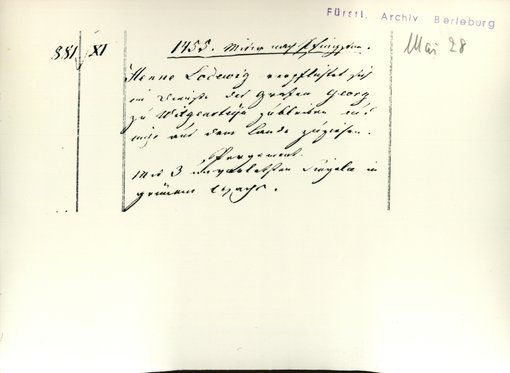 Fürstl. Archiv Berleburg
Mai 28
881 XI
1455. nach Pfingsten.
Henne Lodewig verpflichtet sich
im Dienste des Grafen Georg
zu Witgenstein zu bleiben und
nicht aus dem Lande zu ziehen.
Pergament.
Mit 3 unverletzten Siegeln in
grünem Wachs.